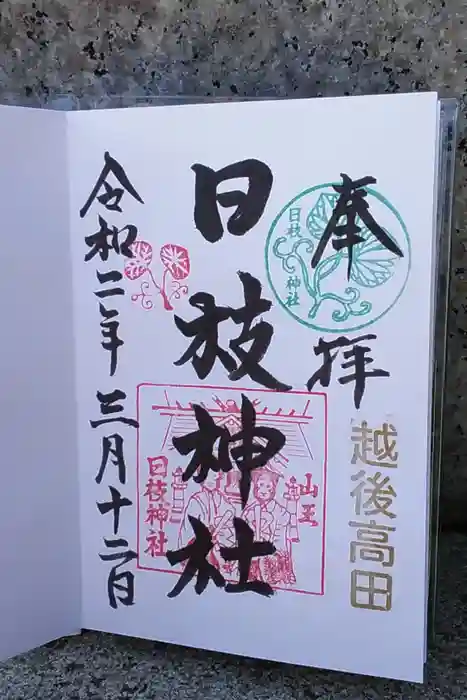 奉拝
日枝神社
越後高田
日枝神社
山王
日枝神社
令和二年三月十二日